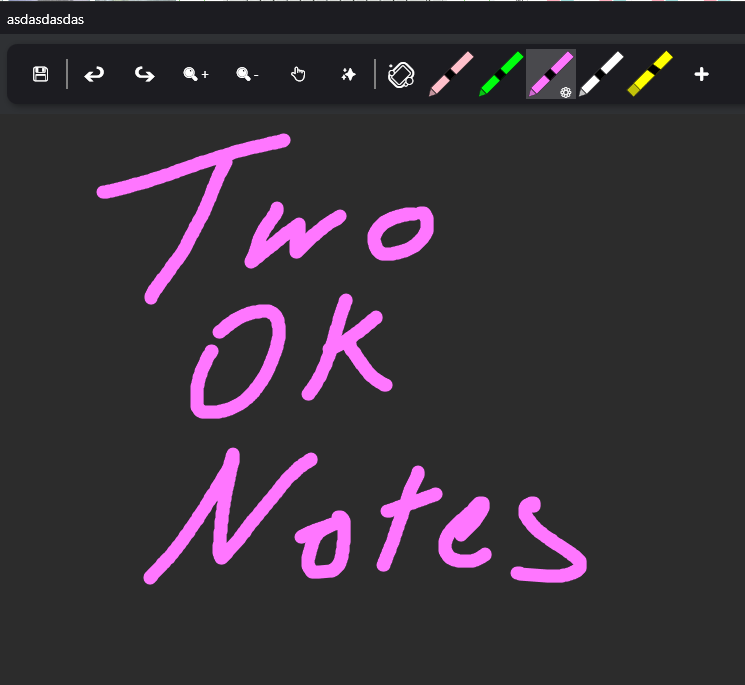 asdasdasdas
+ -
Two
OK
Notes